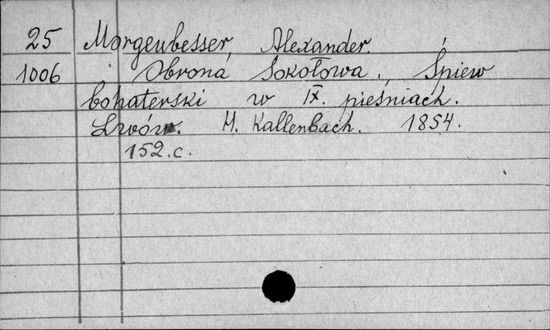 25 Morgenbesser, Alexander.
1006 Obrona Sokołowa., Śpiew
bohaterski w IX. pieśniach.
Lwów. H. Kallenbach. 1854.
152.c.